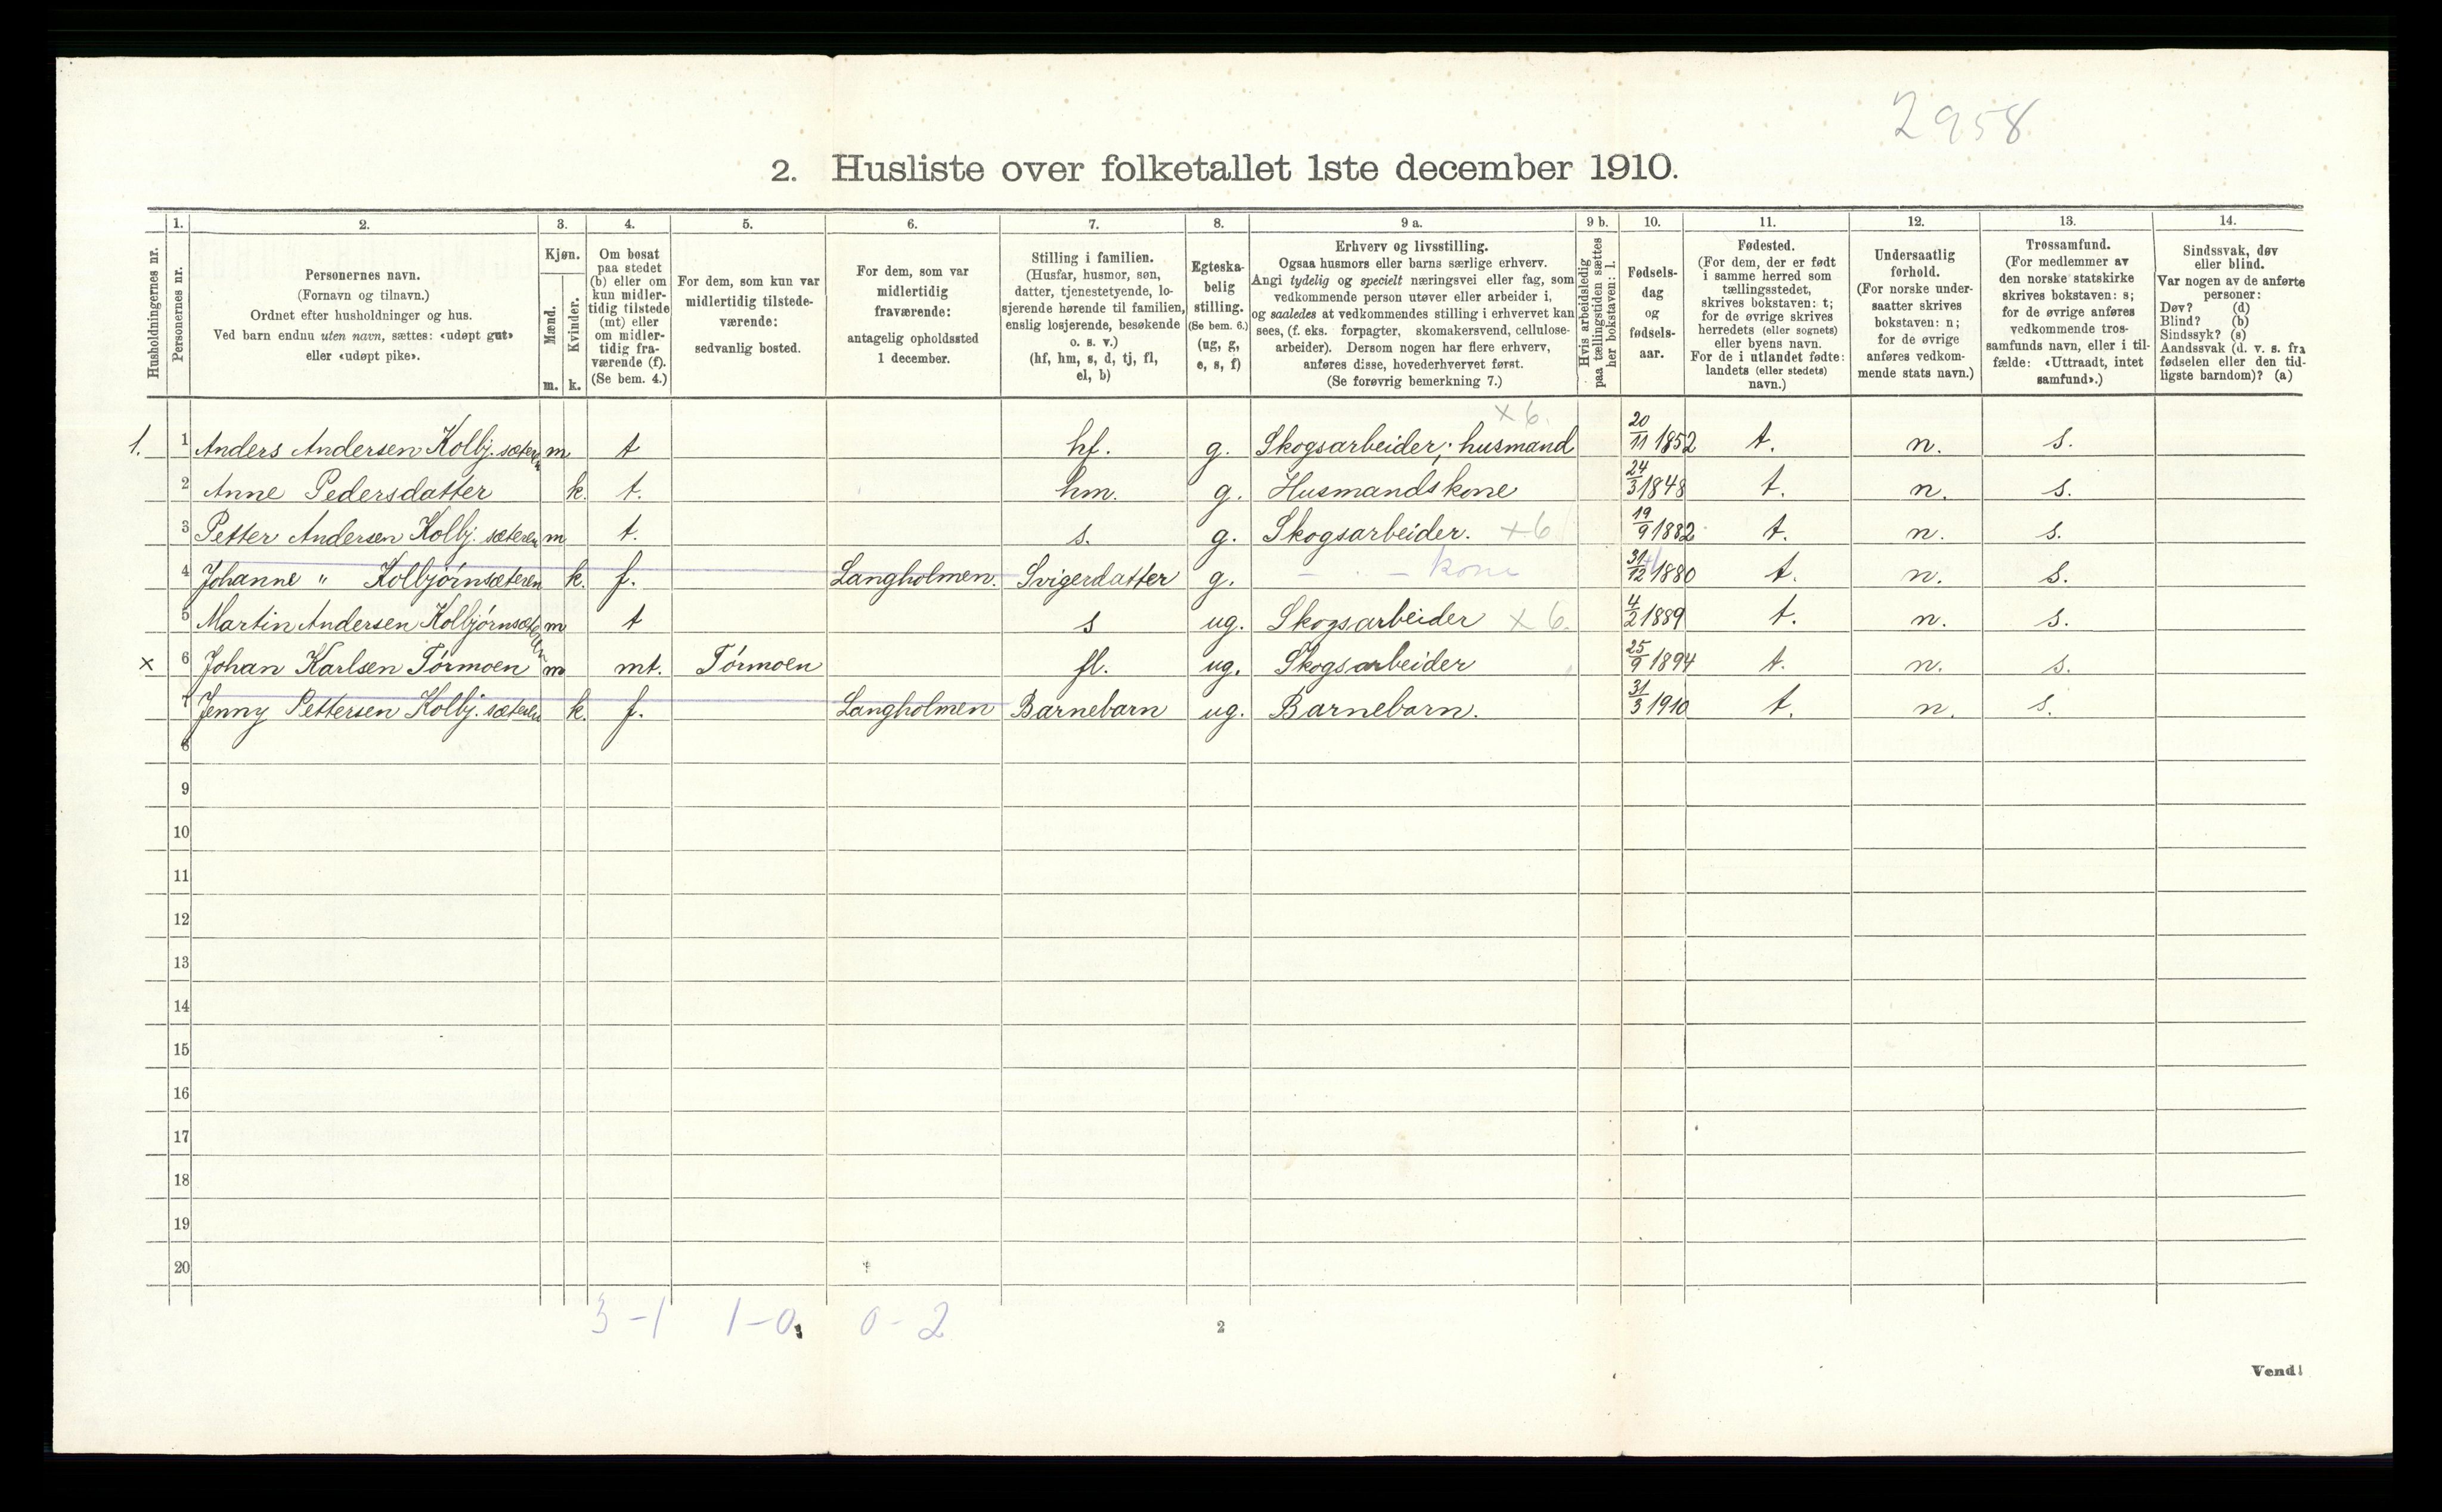 2958
2. Husliste over folketallet 1ste december 1910.
Husholdningernes nr.
1.
Personernes nr.
2.
Personernes navn.
(Fornavn og tilnavn.)
Ordnet efter husholdninger og hus.
Ved barn endnu uten navn, sættes: «udøpt gut»
eller «udøpt pike».
3.
Kjøn.
Mænd.
Kvinder.
m. k.
4.
Om bosat
paa stedet
(b) eller om
kun midler-
tidig tilstede
(mt) eller
om midler-
tidig fra-
værende (f).
(Se bem. 4.)
5.
For dem, som kun var
midlertidig tilstede-
værende:
sedvanlig bosted.
6.
For dem, som var
midlertidig
fraværende:
antagelig opholdssted
1 december.
7.
Stilling i familien.
(Husfar, husmor, søn,
datter, tjenestetyende, lo-
sjerende hørende til familien,
enslig losjerende, besøkende
o. s. v.)
(hf, hm, s, d, tj, fl,
el, b)
8.
Egteska-
belig
stilling.
(Se bem. 6.)
(ug, g,
e, s, f)
9 a.
Erhverv og livsstilling.
Ogsaa husmors eller barns særlige erhverv.
Angi tydelig og specielt næringsvei eller fag, som
vedkommende person utøver eller arbeider i,
og saaledes at vedkommendes stilling i erhvervet kan
sees, (f. eks. forpagter, skomakersvend, cellulose-
arbeider). Dersom nogen har flere erhverv,
anføres disse, hovederhvervet først.
(Se forøvrig bemerkning 7.)
9 b.
Hvis arbeidsledig
paa tællingstiden sættes
her bokstaven: l.
10.
Fødsels-
dag
og
fødsels-
aar.
11.
Fødested.
(For dem, der er født
i samme herred som
tællingsstedet,
skrives bokstaven: t;
for de øvrige skrives
herredets (eller sognets)
eller byens navn.
For de i utlandet fødte:
landets (eller stedets)
navn.)
12.
Undersaatlig
forhold.
(For norske under-
saatter skrives
bokstaven: n;
for de øvrige
anføres vedkom-
mende stats navn.)
13.
Trossamfund.
(For medlemmer av
den norske statskirke
skrives bokstaven: s;
for de øvrige anføres
vedkommende tros-
samfunds navn, eller i til-
fælde: «Uttraadt, intet
samfund».)
14.
Sindssvak, døv
eller blind.
Var nogen av de anførte
personer:
Døv? (d)
Blind? (b)
Sindssyk? (s)
Aandssvak (d. v. s. fra
fødselen eller den tid-
ligste barndom)? (a)
× 6.
1. 1 Anders Andersen Kolbj. sæteren m t hf. g. Skogsarbeider; husmand 20/11 1852 t. n. s.
2 Anne Pedersdatter k. t. hm. g. Husmandskone 24/3 1848 t. n. s.
3 Petter Andersen Kolbj. sæteren m t. s. g. Skogsarbeider. × 6 19/9 1882 t. n. s.
4 Johanne " Kolbjórnsæteren k. f. Langholmen. Svigerdatter g. – · – kone 31/12 1880 t. n. s.
5 Martin Andersen Kolbjórnsæteren m t s ug. Skogsarbeider × 6. 4/2 1889 t. n. s.
× 6 Johan Karlsen Tórmoen m mt. Tórmoen fl. ug. Skogsarbeider 25/9 1894 t. n. s.
7 Jenny Pettersen Kolbj. sæteren k. f. Langholmen Barnebarn ug. Barnebarn. 31/3 1910 t. n. s.
8
9
10
11
12
13
14
15
16
17
18
19
20
3 – 1 1 – 0 0 – 2
2
Vend!